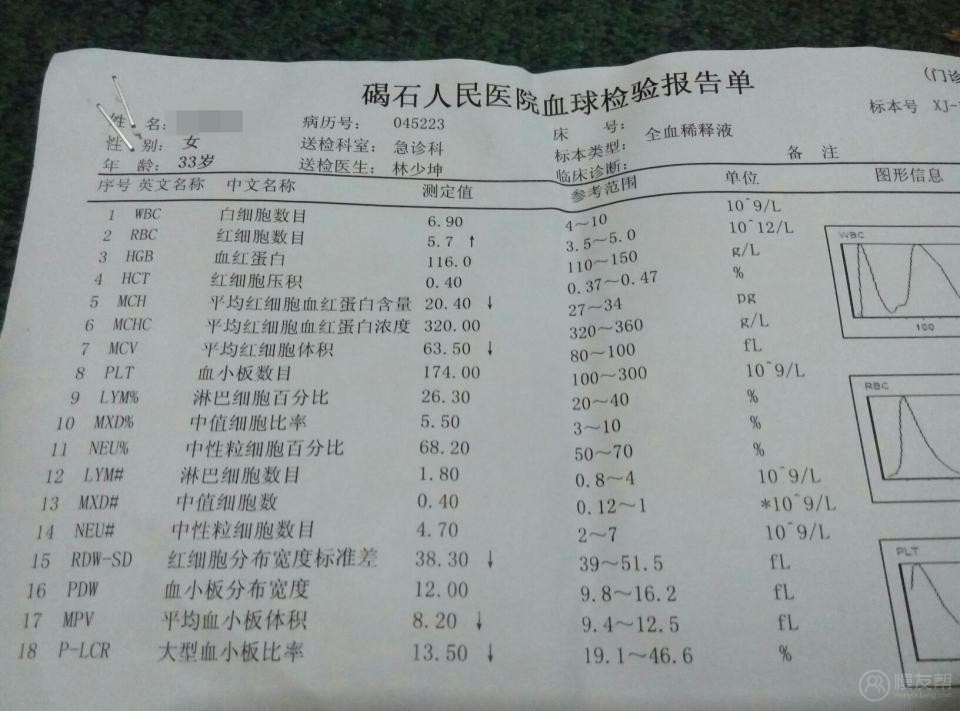 碣石人民医院血球检验报告单
(门诊
姓 名: 病历号: 045223 床 号: 标本号 XJ-
性 别: 女 送检科室: 急诊科 标本类型: 全血稀释液
年 龄: 33岁 送检医生: 林少坤 临床诊断: 备 注
序号 英文名称 中文名称 测定值 参考范围 单位 图形信息
1 WBC 白细胞数目 6.90 4~10 10^9/L
2 RBC 红细胞数目 5.7 ↑ 3.5~5.0 10^12/L
3 HGB 血红蛋白 116.0 110~150 g/L
4 HCT 红细胞压积 0.40 0.37~0.47 %
5 MCH 平均红细胞血红蛋白含量 20.40 ↓ 27~34 pg
6 MCHC 平均红细胞血红蛋白浓度 320.00 320~360 g/L
7 MCV 平均红细胞体积 63.50 ↓ 80~100 fL
8 PLT 血小板数目 174.00 100~300 10^9/L
9 LYM% 淋巴细胞百分比 26.30 20~40 %
10 MXD% 中值细胞比率 5.50 3~10 %
11 NEU% 中性粒细胞百分比 68.20 50~70 %
12 LYM# 淋巴细胞数目 1.80 0.8~4 10^9/L
13 MXD# 中值细胞数 0.40 0.12~1 *10^9/L
14 NEU# 中性粒细胞数目 4.70 2~7 10^9/L
15 RDW-SD 红细胞分布宽度标准差 38.30 ↓ 39~51.5 fL
16 PDW 血小板分布宽度 12.00 9.8~16.2 fL
17 MPV 平均血小板体积 8.20 ↓ 9.4~12.5 fL
18 P-LCR 大型血小板比率 13.50 ↓ 19.1~46.6 %
WBC
100
RBC
PLT